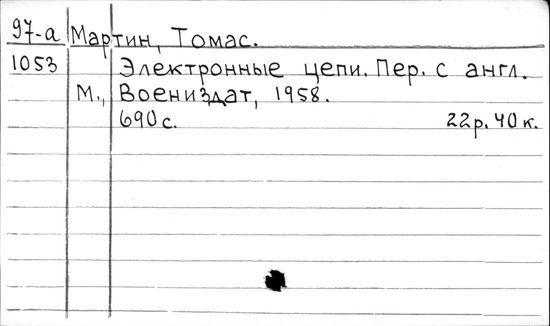 97-а Мартин, Томас.
1053 Электронные цепи. Пер. с англ.
М., Воениздат, 1958.
690 с. 22р. 40к.